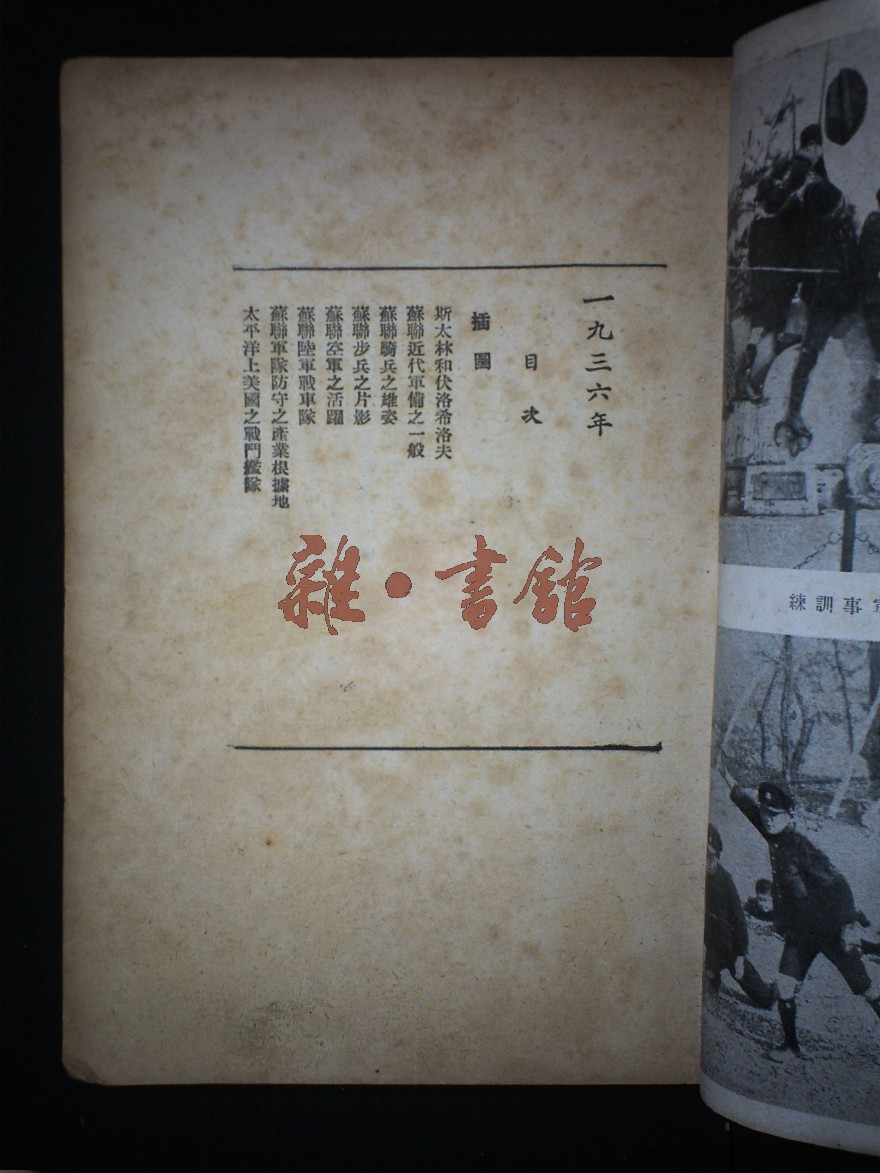 一九三六年
目次
插圖
斯太林和伏洛希洛夫
蘇聯近代軍備之一般
蘇聯騎兵之雄姿
蘇聯步兵之片影
蘇聯空軍之活躍
蘇聯陸軍戰車隊
蘇聯軍隊防守之產業根據地
太平洋上美國之戰鬥艦隊
雜·書館
練訓事軍